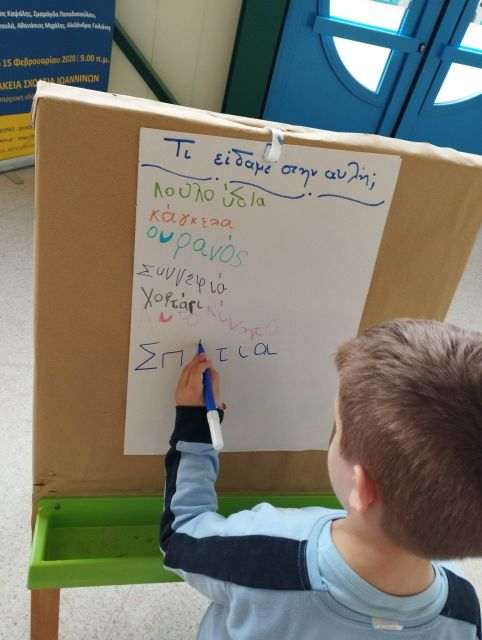 ος Καψάλης, Σμαράγδα Παπαδοπούλου,
ουλά, Αθανάσιος Μιχάλης, Αλεξάνδρος Γαλάνης
15 Φεβρουαρίου 2020 | 9.00 π.μ.
ΑΚΕΙΑ ΣΧΟΛΕΙΑ ΙΩΑΝΝΙΝΩΝ
Τι είδαμε στην αυλή;
λουλούδια
κάγκελα
ουρανός
Συννεφιά
χορτάρι
Σπίτια